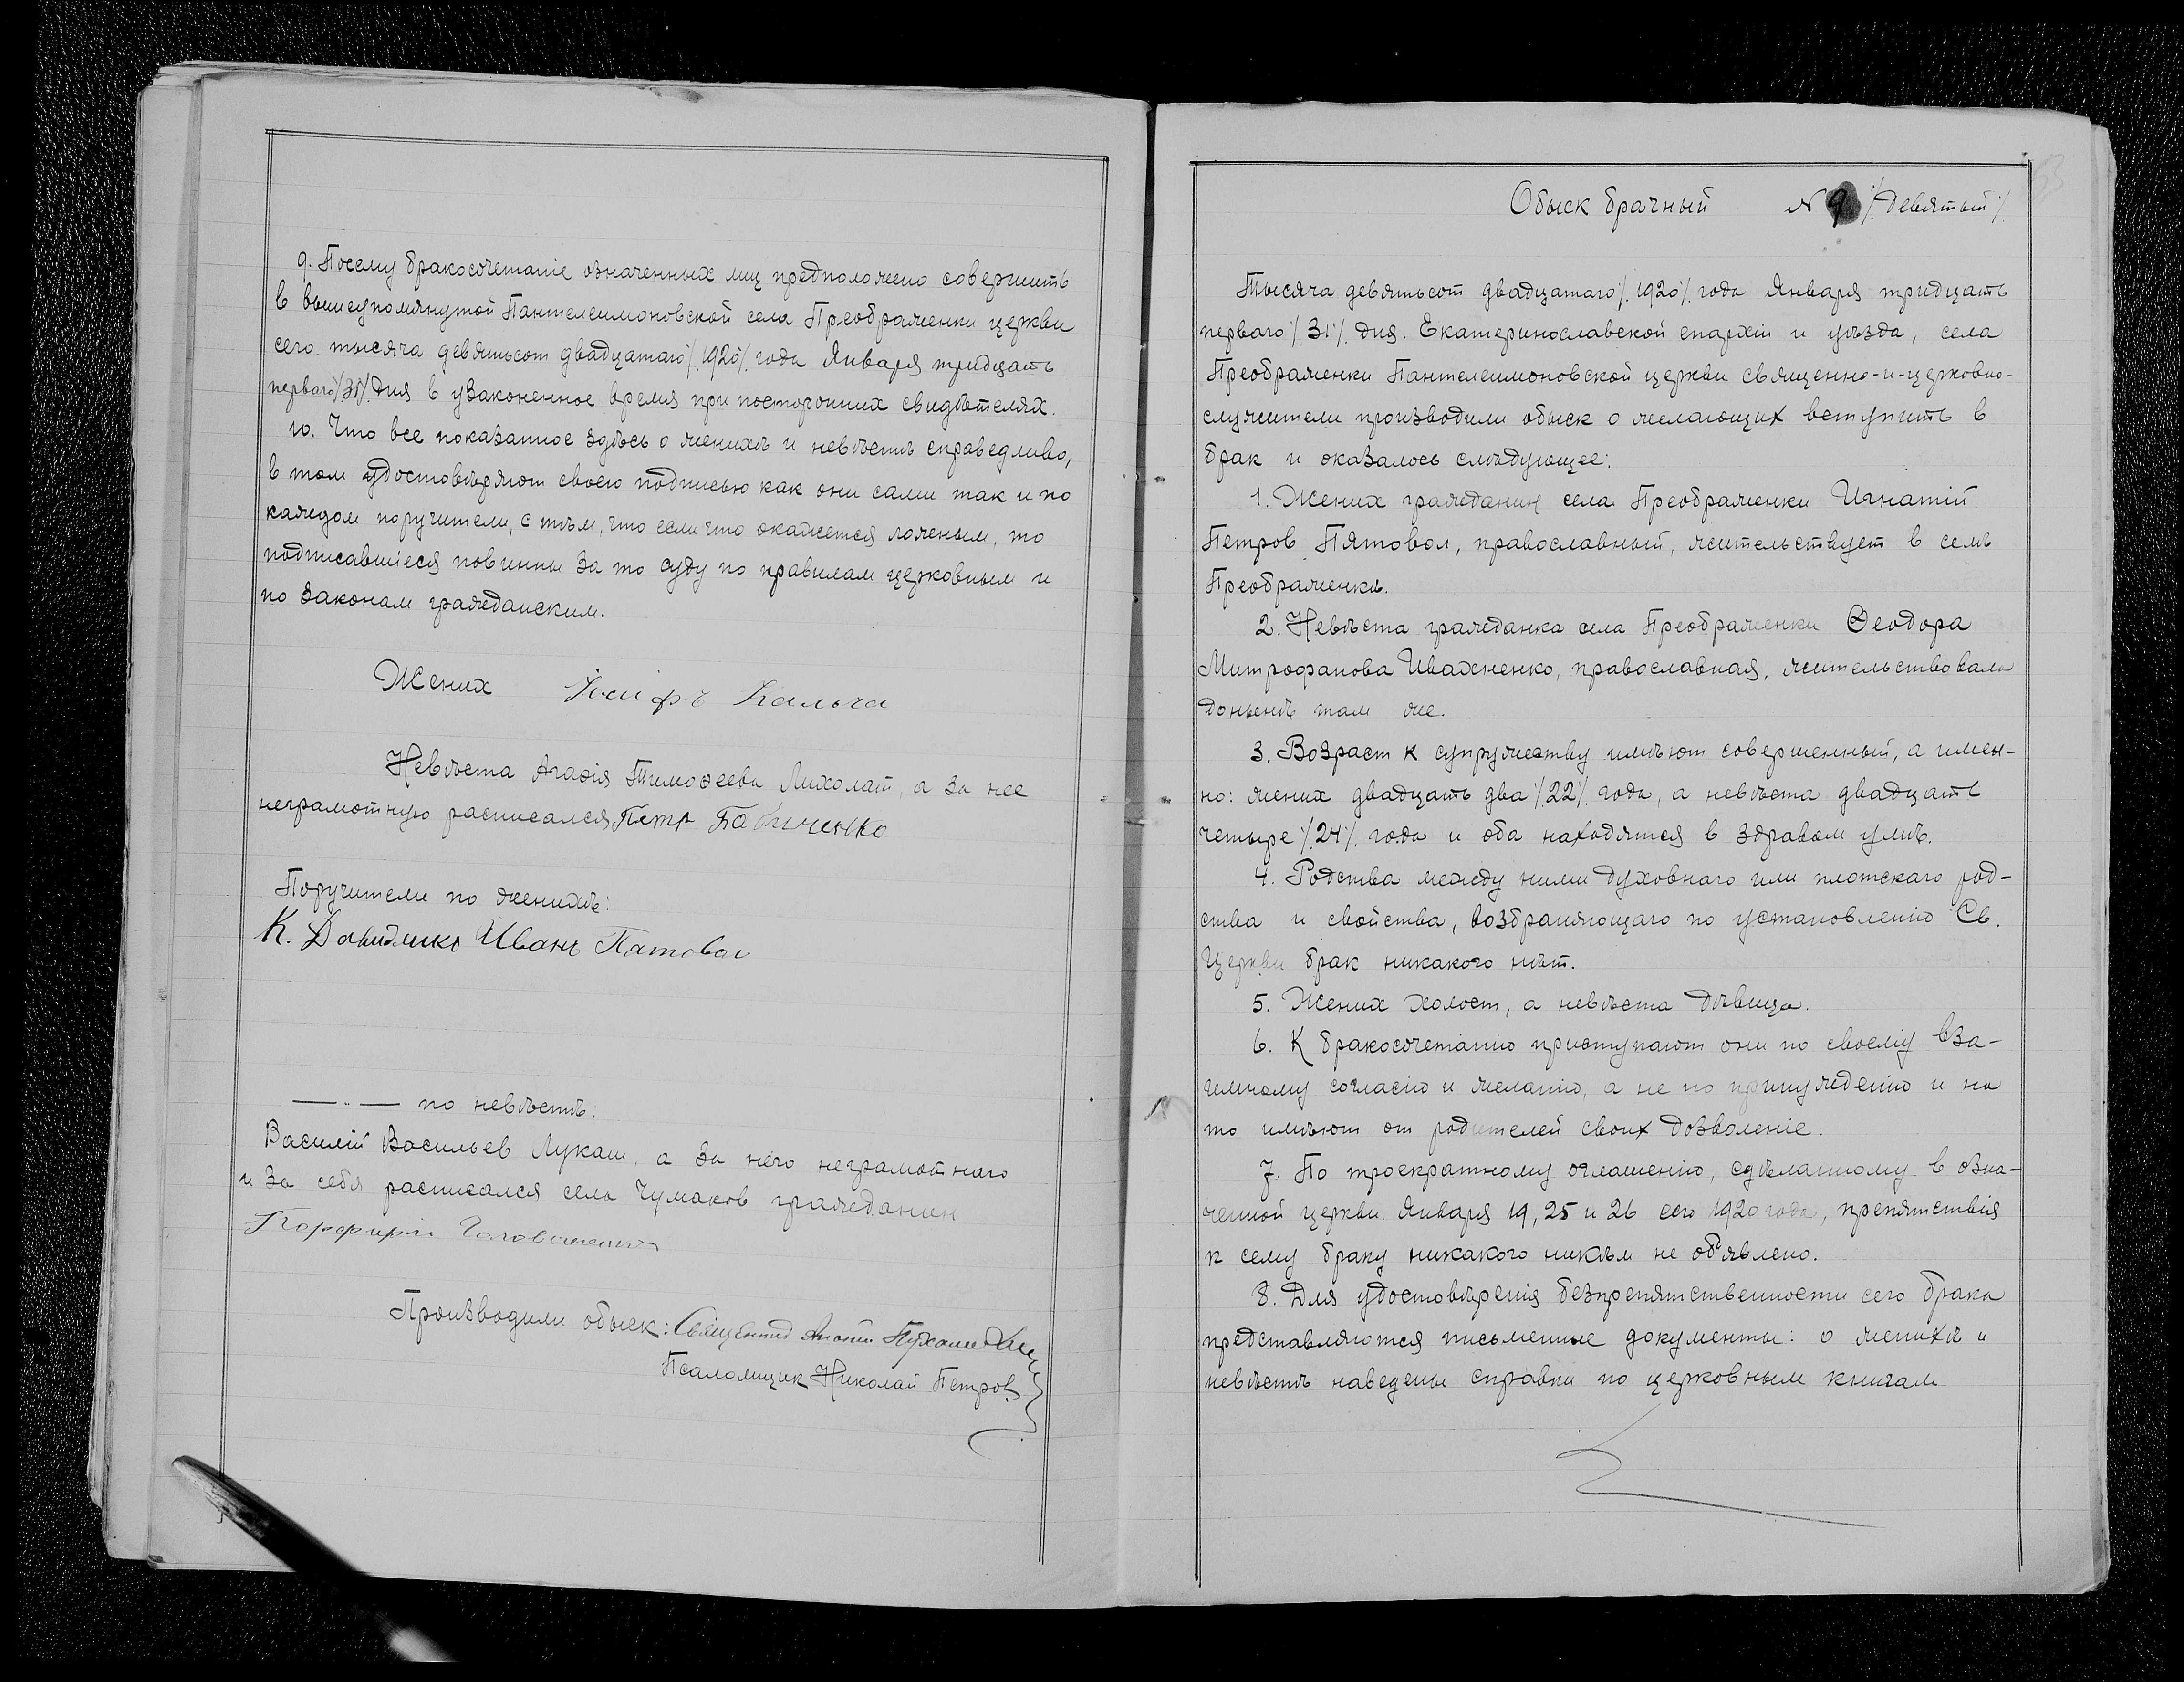 9. Посему бракосочетаніе означенных лиц предположено совершить
в вышеупомянутой Пантелеимоновской села Преображенки церкви
сего тысяча девятьсот двадцатаго /.1920/. года Января тридцать
перваго /.31/. дня в узаконенное время при посторонних свидѣтелях.
10. Что все показанное здѣсь о женихѣ и невѣстѣ справедливо,
в том удостовѣряют своею подписью как они сами так и по
каждом поручители, с тѣм, что если что окажется ложным, то
подписавшіеся повинны за то суду по правилам церковным и
по законам гражданским.
Жених Іосифъ Кальча
Невѣста Агафія Тимофеева Лихолат, а за нее
неграмотную расписался Петр Бабиченко
Поручители по женихѣ:
К. Иванъ Пятовол
—„— по невѣстѣ:
Василій Васильев Лукаш, а за него неграмотнаго
и за себя расписался села Чумаков гражданин
Порфирій
Производили обыск: Священник
Псаломщик Николай Петров
Обыск брачный № 9 /.Девятый/.
Тысяча девятьсот двадцатаго /.1920/. года Января тридцать
перваго /.31/. дня. Екатеринославской епархіи и уѣзда, села
Преображенки Пантелеимоновской церкви священно-и-церковно-
служители производили обыск о желающих вступить в
брак и оказалось слѣдующее:
1. Жених гражданин села Преображенки Игнатій
Петров Пятовол, православный, жительствует в селѣ
Преображенкѣ.
2. Невѣста гражданка села Преображенки Ѳеодора
Митрофанова Ивахненко, православная, жительствовала
донынѣ там же.
3. Возраст к супружеству имѣют совершенный, а имен-
но: жених двадцать два /.22/. года, а невѣста двадцать
четыре /.24/. года и оба находятся в здравом умѣ.
4. Родства между ними духовнаго или плотскаго род-
ства и свойства, возбраняющаго по установленію Св.
Церкви брак никакого нѣт.
5. Жених холост, а невѣста дѣвица.
6. К бракосочетанію приступают они по своему вза-
имному согласію и желанію, а не по принужденію и на
то имѣют от родителей своих дозволеніе.
7. По троекратному оглашенію, сдѣланному в озна-
ченной церкви Января 19, 25 и 26 сего 1920 года, препятствія
к сему браку никакого никѣм не объявлено.
8. Для удостовѣренія безпрепятственности сего брака
представляются письменные документы: о женихѣ и
невѣстѣ наведены справки по церковным книгам